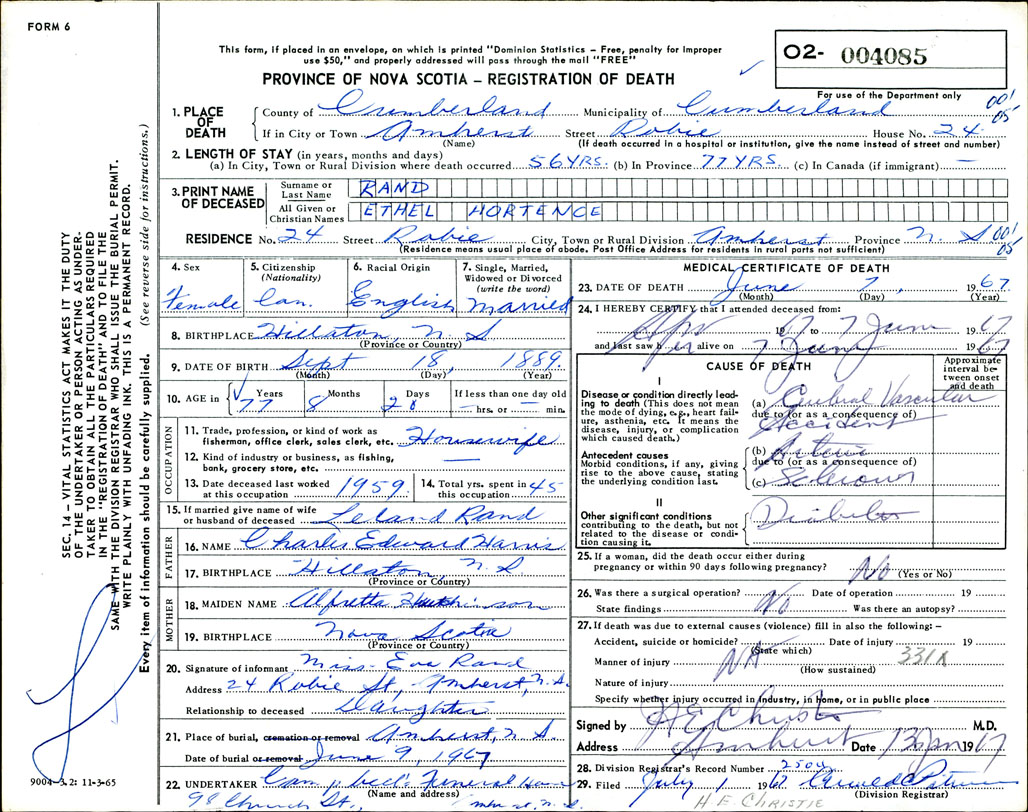 FORM 6
This form, if placed in an envelope, on which is printed "Dominion Statistics – Free, penalty for improper
use $50," and properly addressed will pass through the mail "FREE"
O2- 004085
For use of the Department only
PROVINCE OF NOVA SCOTIA – REGISTRATION OF DEATH
1. PLACE OF DEATH
County of Cumberland Municipality of Cumberland 001
If in City or Town Amherst Street Robie House No. 24 05
(Name) (If death occurred in a hospital or institution, give the name instead of street and number)
2. LENGTH OF STAY (in years, months and days)
(a) In City, Town or Rural Division where death occurred 56 YRS. (b) In Province 77 YRS. (c) In Canada (if immigrant) —
3. PRINT NAME OF DECEASED
Surname or Last Name RAND
All Given or Christian Names ETHEL HORTENCE
RESIDENCE No. 24 Street Robie City, Town or Rural Division Amherst Province N. S 001
05
(Residence means usual place of abode. Post Office Address for residents in rural parts not sufficient)
4. Sex Female
5. Citizenship (Nationality) Can.
6. Racial Origin English
7. Single, Married, Widowed or Divorced (write the word) Married
8. BIRTHPLACE Hillaton, N. S
(Province or Country)
9. DATE OF BIRTH Sept 18, 1889.
(Month) (Day) (Year)
10. AGE in 77 Years 8 Months 20 Days If less than one day old — hrs. or — min.
OCCUPATION
11. Trade, profession, or kind of work as fisherman, office clerk, sales clerk, etc. Housewife
12. Kind of industry or business, as fishing, bank, grocery store, etc. —
13. Date deceased last worked at this occupation 1959.
14. Total yrs. spent in this occupation 45
15. If married give name of wife or husband of deceased Leland Rand
FATHER
16. NAME Charles Edward Harris
17. BIRTHPLACE Hillaton, N. S
(Province or Country)
MOTHER
18. MAIDEN NAME Alfretta
19. BIRTHPLACE Nova Scotia
(Province or Country)
20. Signature of informant Miss. Eva Rand
Address 24 Robie St, Amherst, N.S.
Relationship to deceased Daughter
21. Place of burial, cremation or removal Amherst, N. S.
Date of burial or removal June 9, 1967
22. UNDERTAKER Campbell's Funeral Home
(Name and address)
98 Church St., Amherst, N. S.
MEDICAL CERTIFICATE OF DEATH
23. DATE OF DEATH June 7, 1967.
(Month) (Day) (Year)
24. I HEREBY CERTIFY that I attended deceased from:
Apr 1967 to 7 June 1967
and last saw her alive on 7 June 1967
CAUSE OF DEATH
Approximate interval between onset and death
I
Disease or condition directly leading to death (This does not mean the mode of dying, e.g., heart failure, asthenia, etc. It means the disease, injury, or complication which caused death.)
(a) Cerebral Vascular
due to (or as a consequence of)
Accident
Antecedent causes
Morbid conditions, if any, giving rise to the above cause, stating the underlying condition last.
(b) Arterio
due to (or as a consequence of)
(c) Sclerosis
II
Other significant conditions contributing to the death, but not related to the disease or condition causing it. Diabetes
25. If a woman, did the death occur either during pregnancy or within 90 days following pregnancy? No (Yes or No)
26. Was there a surgical operation? No Date of operation 19
State findings Was there an autopsy?
27. If death was due to external causes (violence) fill in also the following: –
Accident, suicide or homicide? Date of injury 19
(State which)
Manner of injury NA 331X
(How sustained)
Nature of injury
Specify whether injury occurred in industry, in home, or in public place
Signed by H E Christie M.D.
Address Amherst Date 13 Jun 1967
28. Division Registrar's Record Number 2504
29. Filed July 1 1967
(Division Registrar)
H E CHRISTIE
SEC. 14 – VITAL STATISTICS ACT MAKES IT THE DUTY
OF THE UNDERTAKER OR PERSON ACTING AS UNDER-
TAKER TO OBTAIN ALL THE PARTICULARS REQUIRED
IN THE "REGISTRATION OF DEATH" AND TO FILE THE
SAME WITH THE DIVISION REGISTRAR WHO SHALL ISSUE THE BURIAL PERMIT.
WRITE PLAINLY WITH UNFADING INK. THIS IS A PERMANENT RECORD.
Every item of information should be carefully supplied. (See reverse side for instructions.)
9004–3.2: 11-3-65